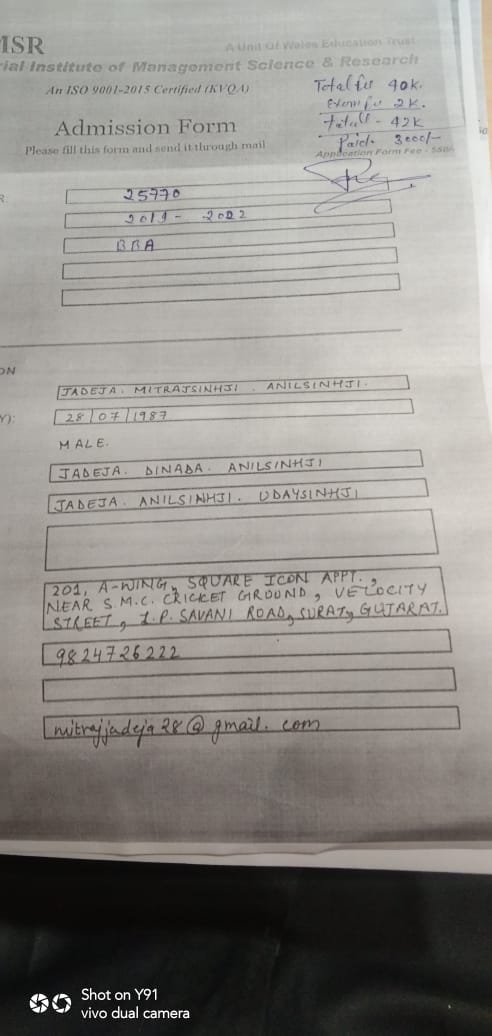 MSR
A Unit Of Wales Education Trust
rial Institute of Management Science & Research
An ISO 9001-2015 Certified (KVQA)
Total fee 40k.
Exam fee 2k.
Total - 42k
Paid. 3000/-
Admission Form
Please fill this form and send it through mail
Application Form Fee - 550/-
R
25770
2019 - 2022
BBA
ON
JADEJA. MITRAJSINHJI. ANILSINHJI.
Y):
28/07/1987
MALE.
JADEJA. DINABA. ANILSINHJI
JADEJA. ANILSINHJI. UDAYSINHJI
201, A-WING, SQUARE ICON APPT.,
NEAR S.M.C. CRICKET GROUND, VELOCITY
STREET, L.P. SAVANI ROAD, SURAT, GUJARAT.
9824726222
mitrajjadeja28@gmail.com
Shot on Y91
vivo dual camera